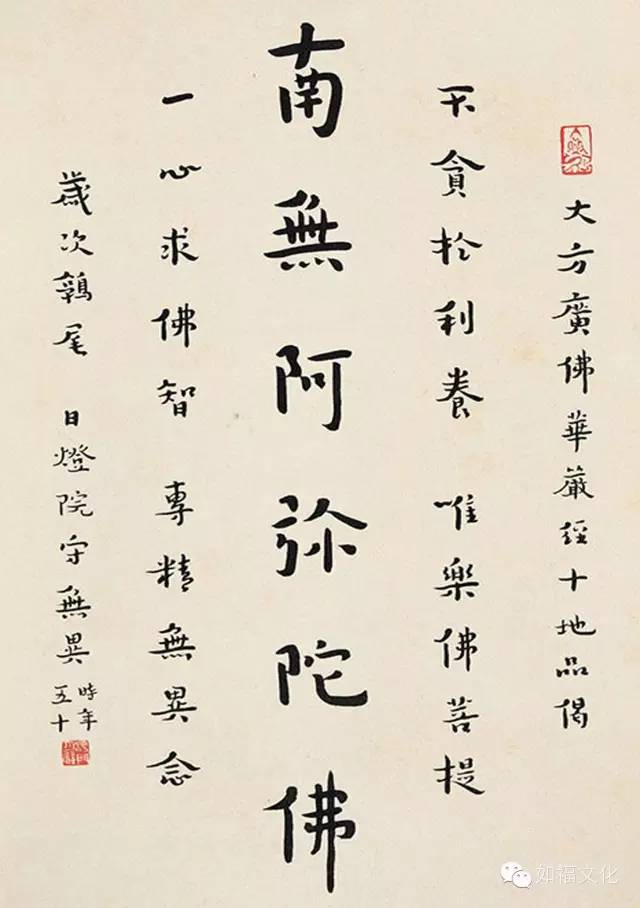 大方廣佛華嚴經十地品偈
不貪於利養 唯樂佛菩提
南無阿弥陀佛
一心求佛智 專精無異念
歲次鶉尾 日燈院守無異 時年五十
如福文化